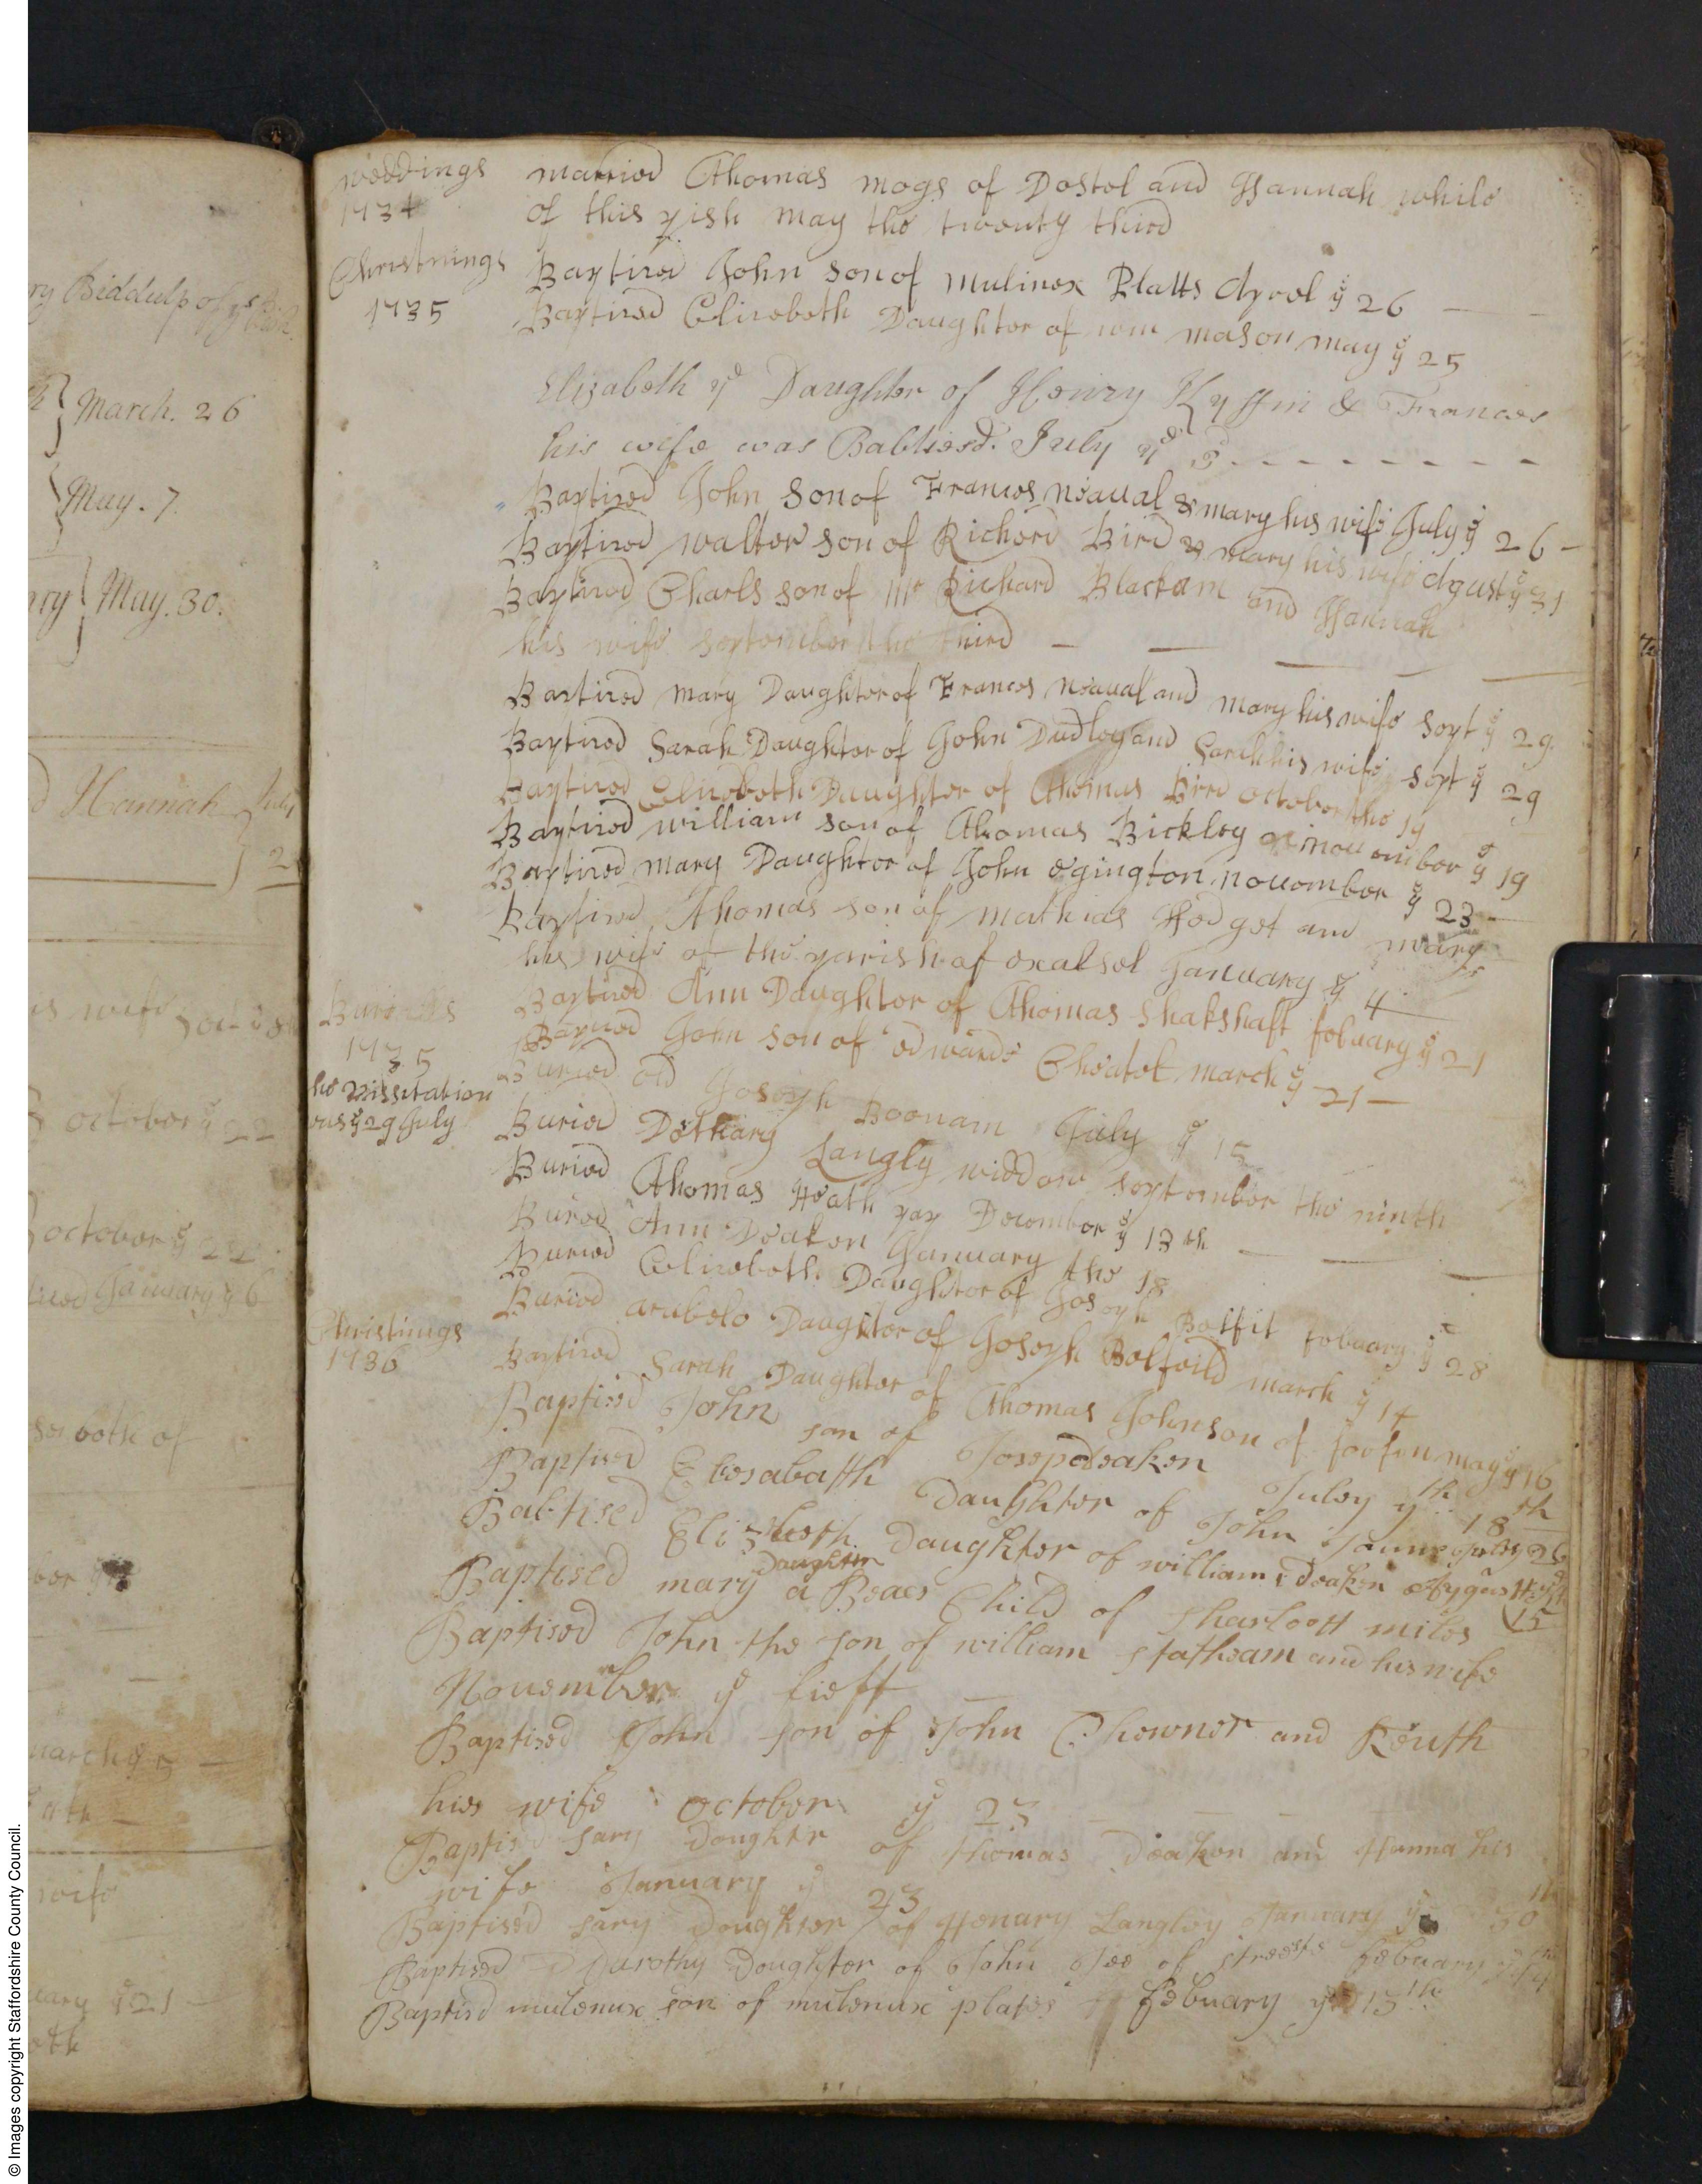 ry Biddulp of ys
March. 26
May. 7.
ry May. 30.
Hannah July
2
is wife
october ye 22
october ye 22
January ye 6
beth of
march ye
wife
ye 21
weddings
1734
married Thomas mogs of Dostol and Hannah while
of this pish may the twenty third
Christnings
1735
Baptised John son of Mulinex Platts Aprel ye 26
Baptised Elizebeth Daughter of wm mason may ye 25
Elizabeth ye Daughter of Henry Kyffin & Frances
his wife was Babtised. July ye 3 - - - - - - - -
Baptised John son of Frances neaual & mary his wife July ye 26 -
Baptised walter son of Richerd Bird & mary his wife Agust ye 31
Baptised Charls son of Mr Richard Blackam and Hannah
his wife September the third
Baptised mary Daughter of Frances neaual and mary his wife Sept ye 29
Baptised Sarah Daughter of John Dudley and Sarah his wife Sept ye 29
Baptised Elizebeth Daughter of Thomas Bird october the 19
Baptised william son of Thomas Bickley nouember ye 19
Baptised mary Daughter of John egington nouember ye 23 -
Baptised Thomas son of mathias Hodget and mary
his wife of the parish of exalsel January ye 4
Baptised Ann Daughter of Thomas Shakshaft febuary ye 21
Baptised John son of edwards Cheatet march ye 21 -
Burialls
1735
the vissitation
was ye 29 July
Buried old Joseph Boonam July ye 15
Buried Dothary Langly widdow september the ninth
Buried Thomas Heath pap December ye 13th
Buried Ann Deaken January the 18
Buried Elizebeth Daughter of Joseph Botfit febuary ye 28
Buried arabelo Daughter of Joseph Botfeild march ye 14
Christings
1736
Baptised Sarah Daughter of Thomas Johnson of may ye 16
Baptised John son of Josep deaken Juley yth 18th
Baptised Elesabath Daughter of John Juley 26
Babtised Elizbeth Daughter of william deaken
Baptised mary Daughter a Beaes Child of sharloott miles 15
Baptised John the son of william statheam and his wife
Nouember ye fieft
Baptised John son of John Chowner and Reuth
hies wife october ye 23
Baptised sary Doughter of Thomas Deakon and Hanna his
wife January ye 23
Baptised sary Doughter of Henary Langley January ye 30th
Baptised Darothy Doughter of John Tee of streets Febuary
Baptisd mulenux son of mulenux plates febuary ye 13th
© Images copyright Staffordshire County Council.